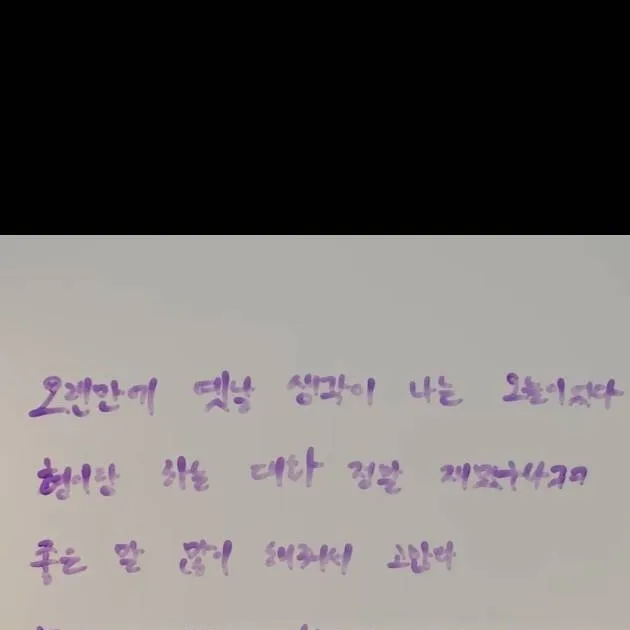 오랜만에 옛날 생각이 나는 오늘이었다
형이랑 하는 대화 정말
좋은 말 많이 해줘서 고맙다